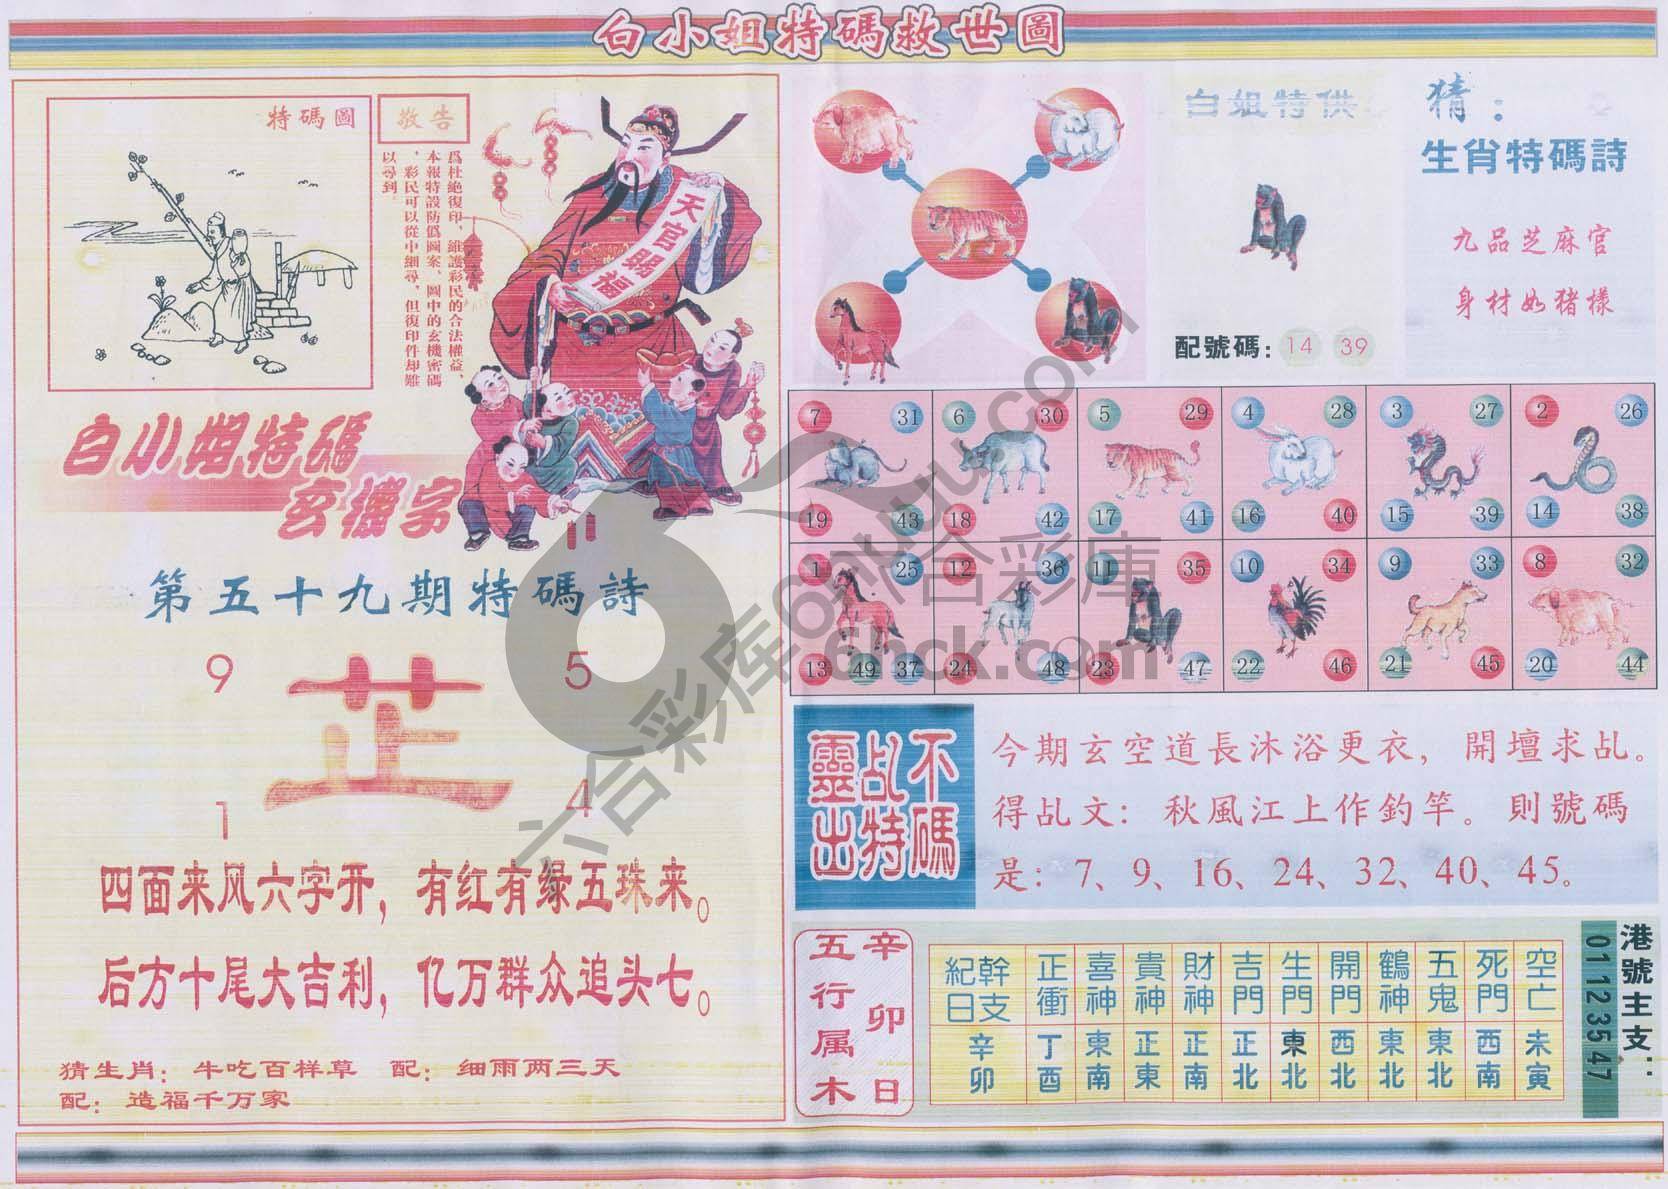 白小姐特碼救世圖
特碼圖
敬告
爲杜絶復印，維護彩民的合法權益，
本報特設防僞圖案、圖中的玄機密碼
，彩民可以從中細尋，但復印件却難
以尋到.
天官賜福
白小姐特碼
玄機字
第五十九期特碼詩
9 5
芷
1 4
四面来风六字开，有红有绿五珠来。
后方十尾大吉利，亿万群众追头七。
猜生肖：牛吃百样草 配：细雨两三天
配：造福千万家
白姐特供
配號碼：14 39
猜：
生肖特碼詩
九品芝麻官
身材如猪樣
7 31 6 30 5 29 4 28 3 27 2 26
19 43 18 42 17 41 16 40 15 39 14 38
1 25 12 36 11 35 10 34 9 33 8 32
13 49 37 24 48 23 47 22 46 21 45 20 44
不碼
乩特
靈出
今期玄空道長沐浴更衣，開壇求乩。
得乩文：秋風江上作釣竿。則號碼
是：7、9、16、24、32、40、45。
辛卯日
五行属木
紀日 幹支 正衝 喜神 貴神 財神 吉門 生門 開門 鶴神 五鬼 死門 空亡
辛卯 丁酉 東南 正東 正南 正北 東北 西北 東北 東北 西南 未寅
港號主支：
01 12 35 47
六合彩库6htuku.com
六合彩庫
6hck.com